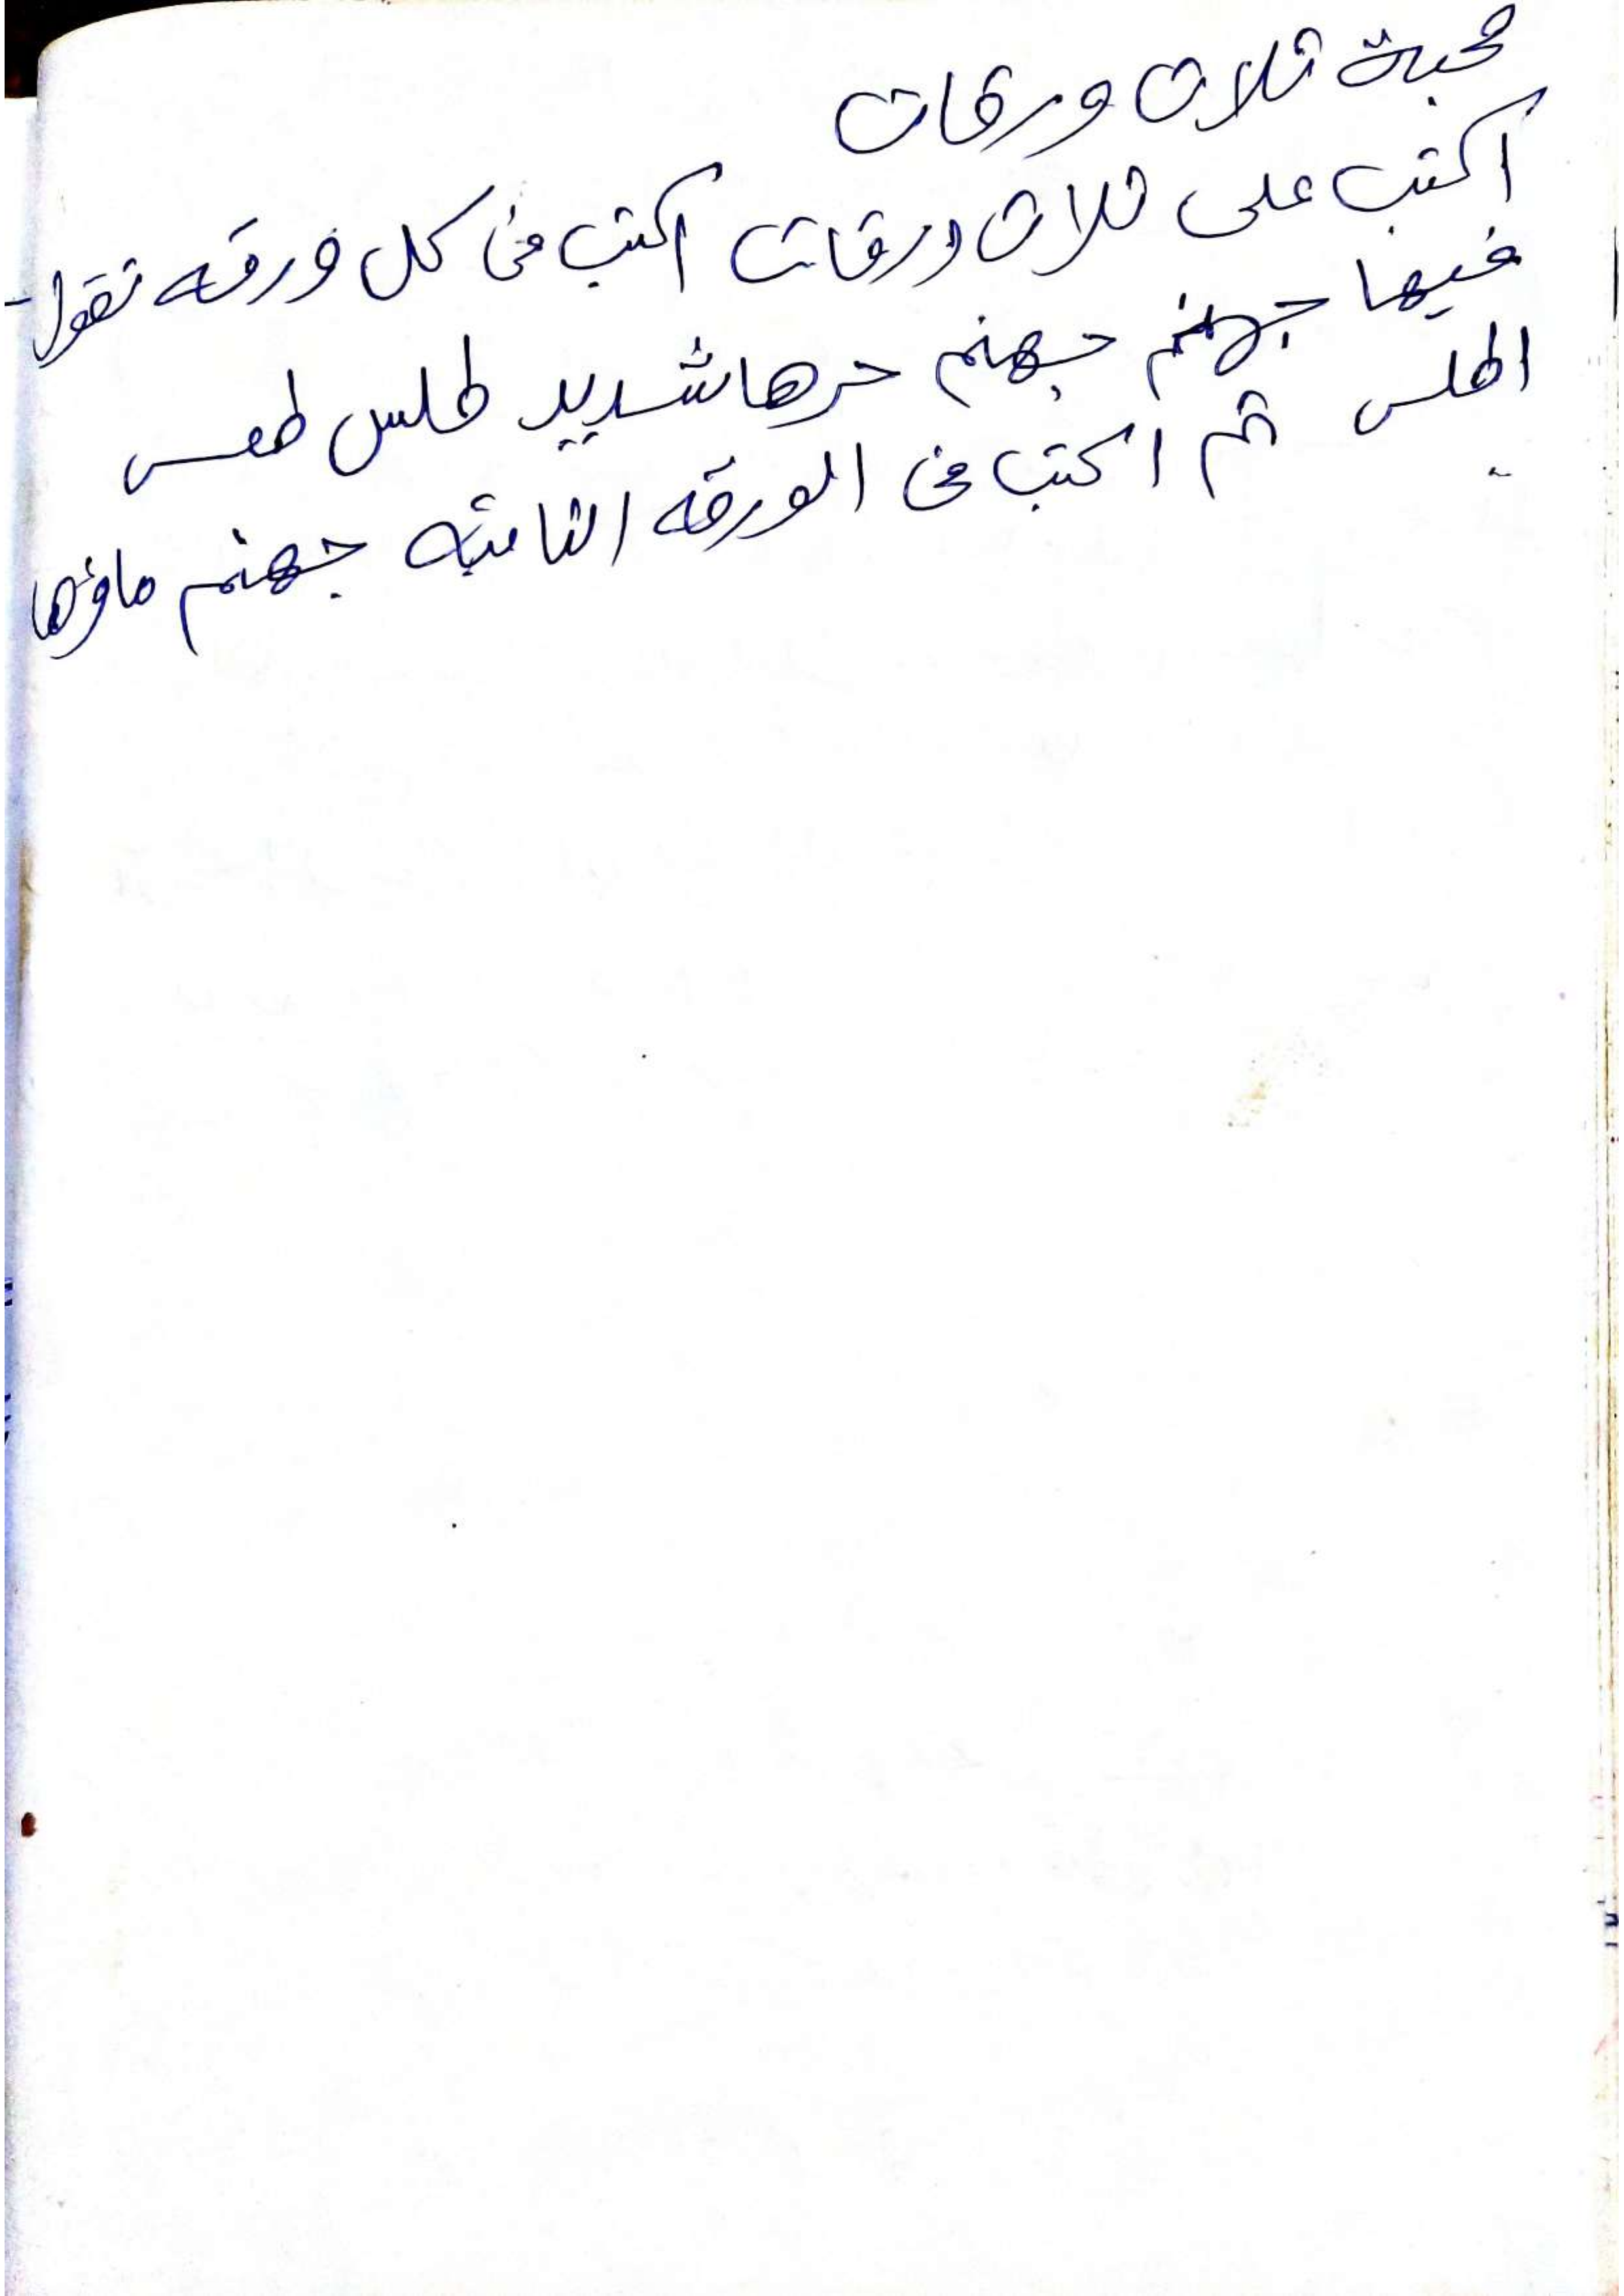 محبة ثلاث ورقات
اكتب على ثلاث ورقات اكتب فى كل ورقه تقول
فيها جهنم جهنم حرها شديد طلس طعس
اطلس ثم اكتب فى الورقه الثانيه جهنم ماؤها